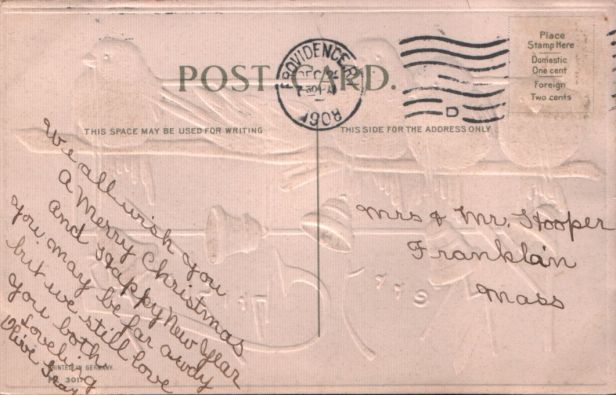 POST CARD.
PROVIDENCE, R.I.
DEC 24
7-30 A
1908
D
Place
Stamp Here
Domestic
One cent
Foreign
Two cents
THIS SPACE MAY BE USED FOR WRITING
THIS SIDE FOR THE ADDRESS ONLY
We all wish you
A Merry Christmas
and Happy New Year
you may be far away
but we still love
you both
Loveling
Olive
Mrs & Mr. Hooper
Franklin
Mass
PRINTED IN GERMANY.